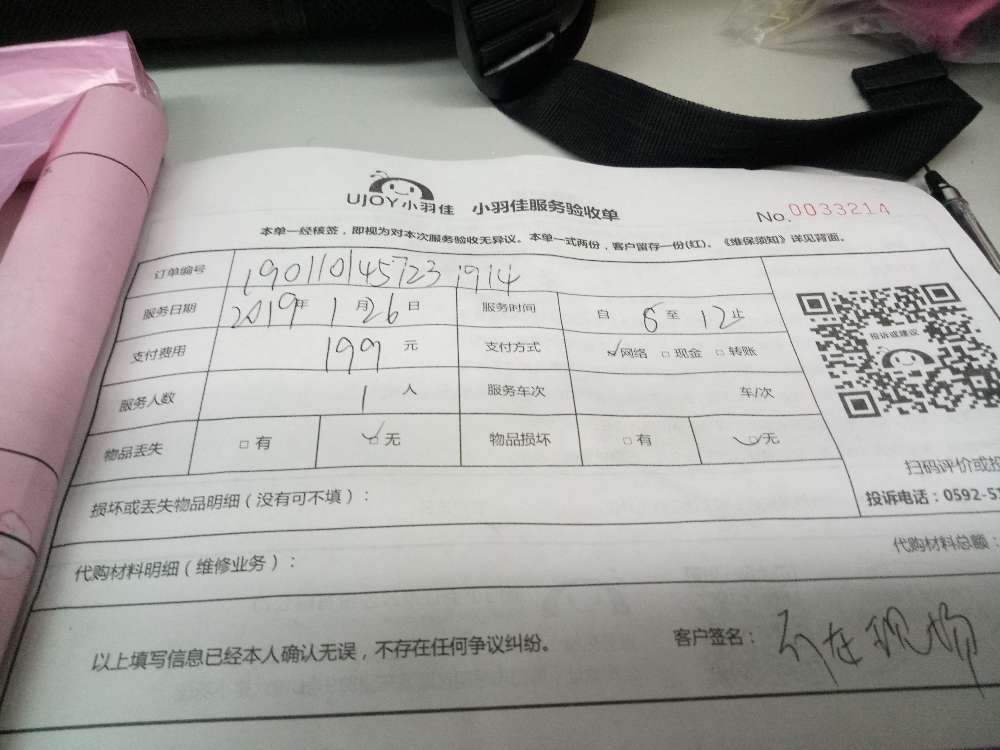 UJOY小羽佳 小羽佳服务验收单
No.0033214
本单一经核签，即视为对本次服务验收无异议。本单一式两份，客户留存一份(红)、《维保须知》详见背面。
订单编号 190110145723 1914
服务日期 2019年 1月26日 服务时间 自 8 至 12 止
支付费用 199 元 支付方式 ☑网络 □现金 □转账
投诉或建议
服务人数 1 人 服务车次 车/次
物品丢失 □有 ☑无 物品损坏 □有 ☑无
扫码评价或投
投诉电话：0592-51
损坏或丢失物品明细（没有可不填）：
代购材料明细（维修业务）： 代购材料总额：
以上填写信息已经本人确认无误，不存在任何争议纠纷。 客户签名： 不在现场